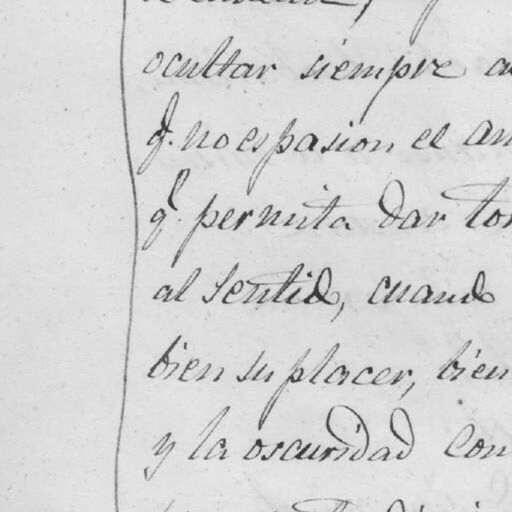 ocultar siempre
q.e no es pasion el
q.e permita dar
al sentido, cuando
bien su placer, bien
y la oscuridad con